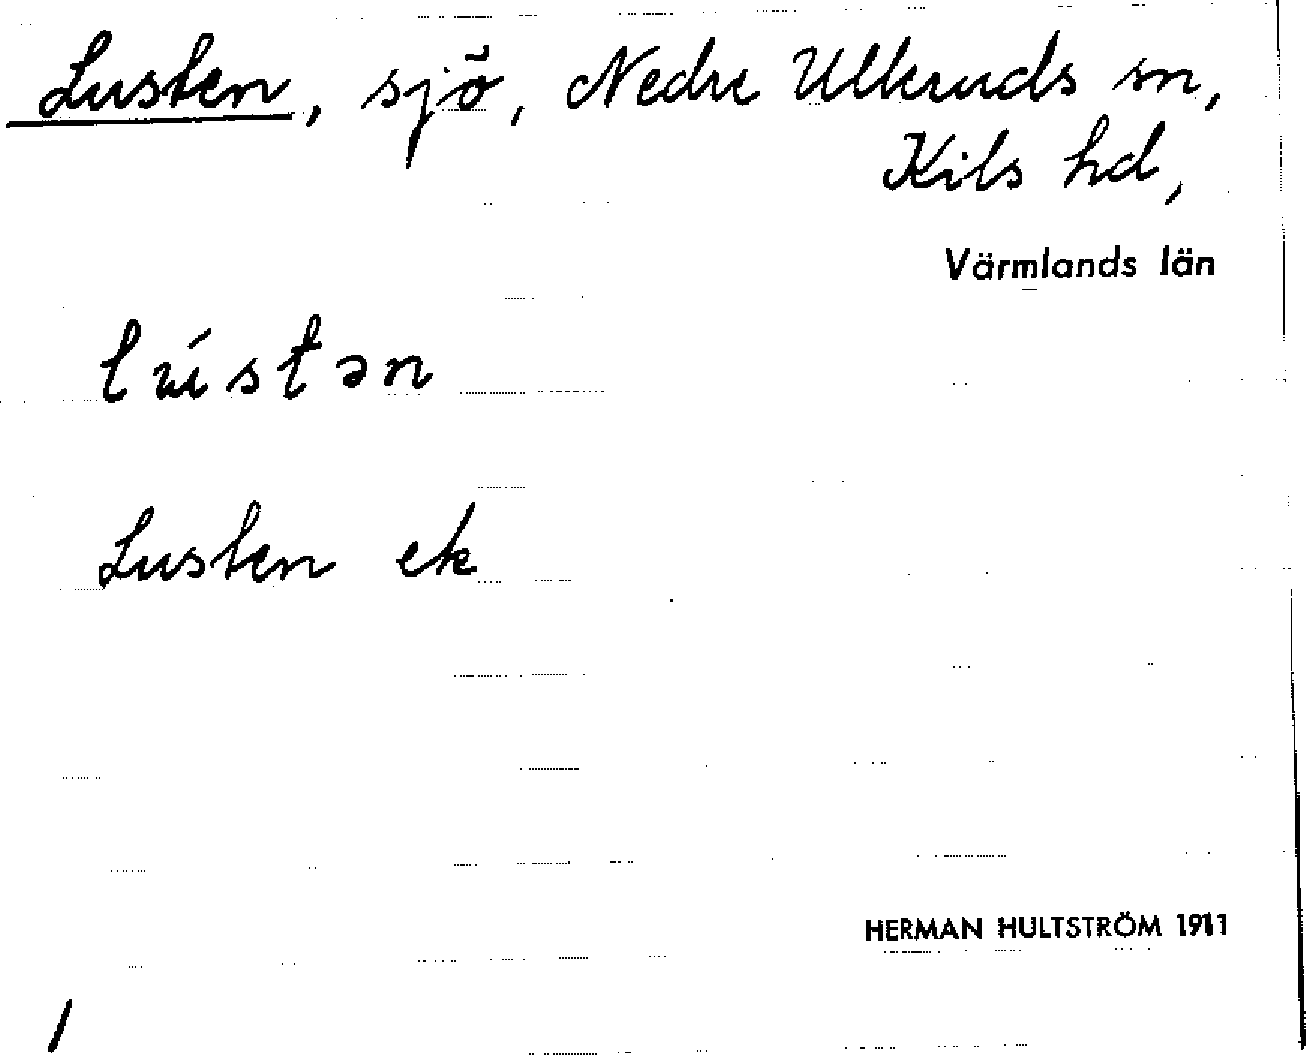 Lusten, sjö, Nedre Ulleruds sn,
Kils hd,
Värmlands län
lústən
Lusten ek
HERMAN HULTSTRÖM 1911
/